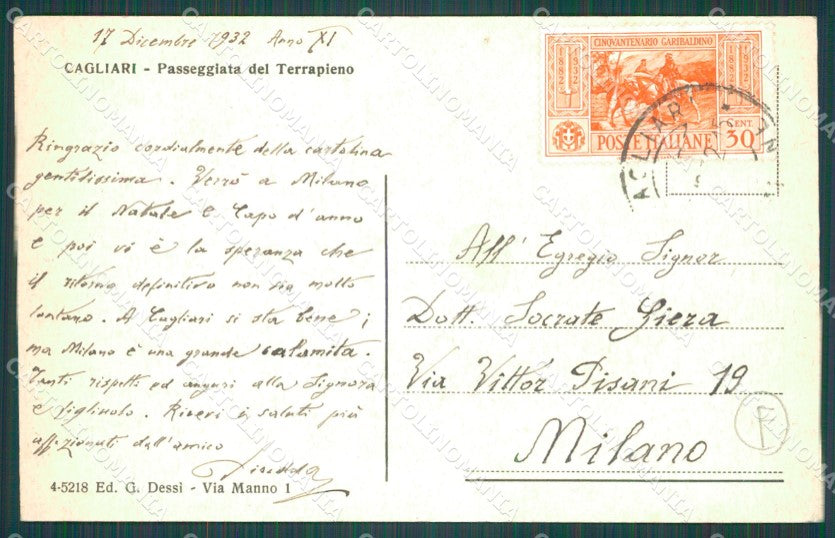 17 Dicembre 1932 Anno XI
CAGLIARI - Passeggiata del Terrapieno
Ringrazio cordialmente della cartolina
gentilissima. Verrò a Milano
per il Natale e Capo d'anno
e poi vi è la speranza che
il ritorno definitivo non sia molto
lontano. A Cagliari si sta bene;
ma Milano è una grande calamita.
Tanti rispetti ed auguri alla Signora
e figliuolo. Ricevi i saluti più
affezionati dall'amico
4-5218 Ed. G. Dessì - Via Manno 1
CINQUANTENARIO GARIBALDINO
1882 1932
1882 1932
POSTE ITALIANE
CENT. 30
CAGLIARI
All' Egregio Signor
Dott. Socrate Giera
Via Vittor Pisani 19
Milano
F
CARTOLINOMANIA